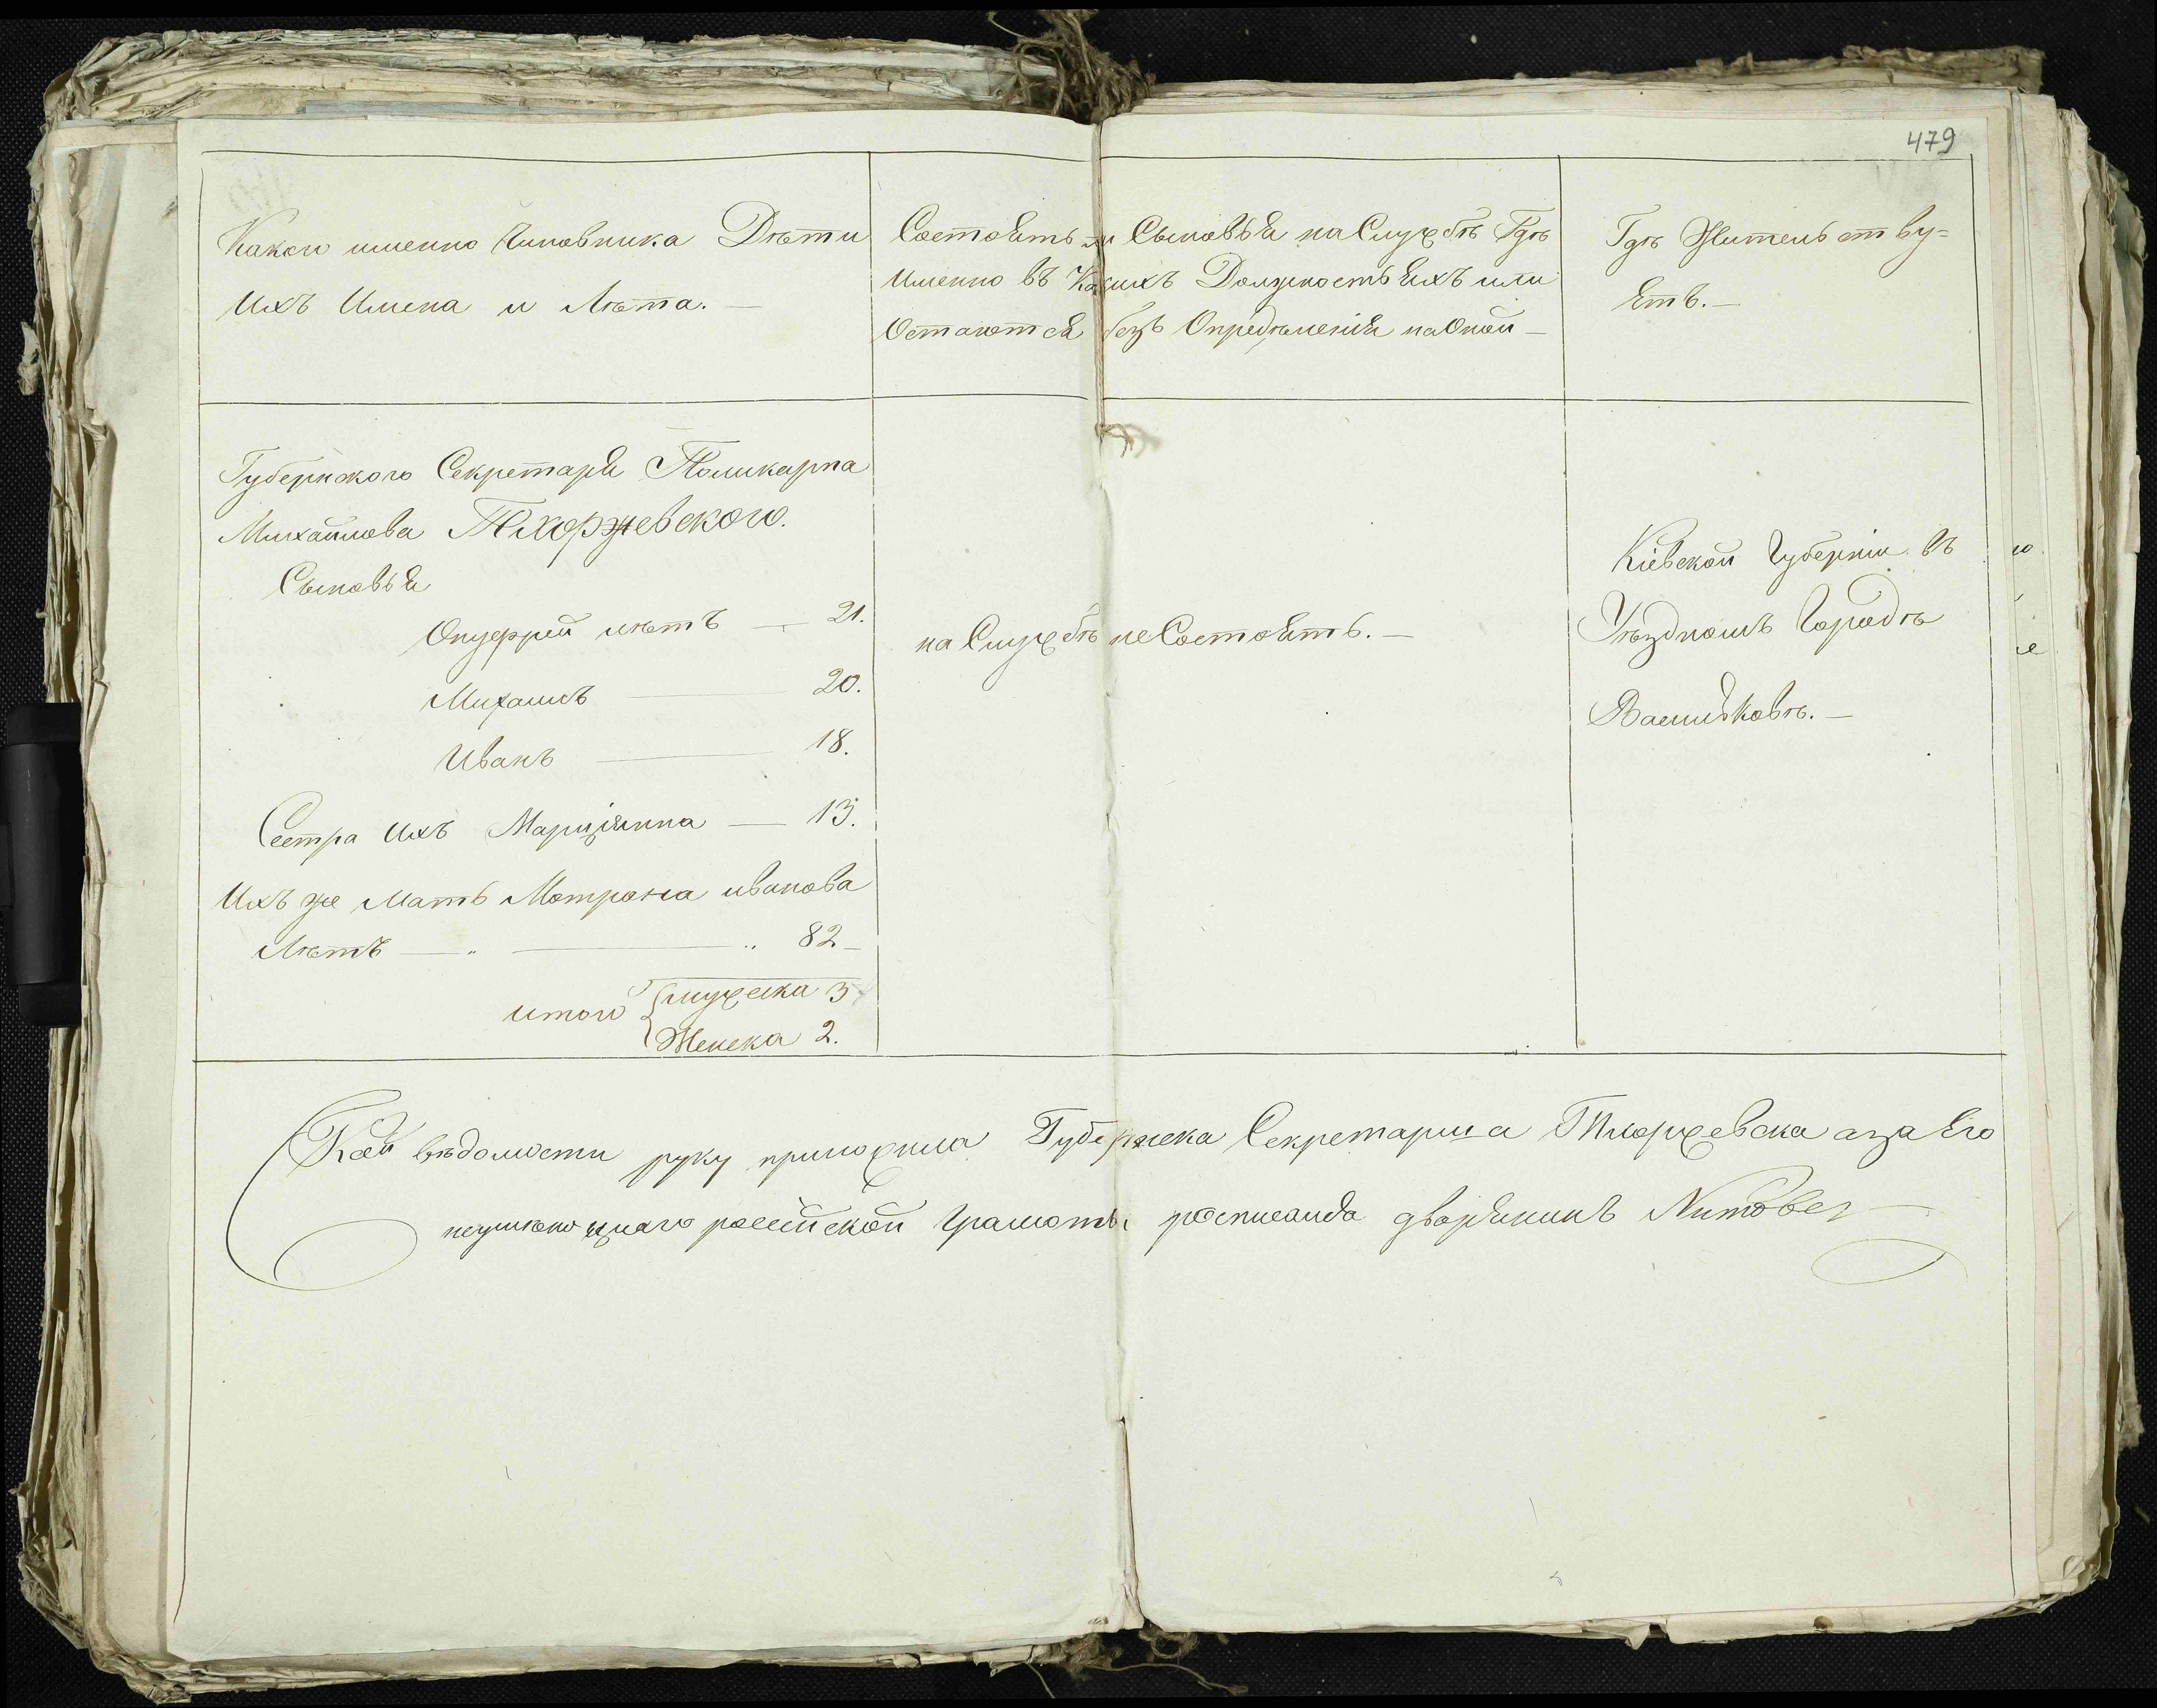 479
Какои именно Чиновника Дѣти
Ихъ Имена и Лѣта. —
Состоятъ ли Сыновья на Службѣ Гдѣ
Именно въ Какихъ Должностьяхъ или
Остаются безъ Опредѣленія на Оной —
Гдѣ Жительству=
етъ. —
Губернского Секретаря Поликарпа
Михайлова Тхоржевского.
Сыновья
Онуфрий лѣтъ — 21.
Михаилъ — 20.
Иванъ — 18.
Сестра Ихъ Марциянна — 13.
Ихъ же Мать Мотрона иванова
Лѣтъ — „ — „ 82 —
итого { мужеска 3
Женска 2.
на Службѣ не Состоятъ. —
Кіевской Губерніи въ
Уѣздномъ Городѣ
Василковѣ. —
К сей вѣдомости руку приложила Губернска Секретарша Тхоржевска а за Его
неумѣющаго российской грамоты росписался дворянинъ